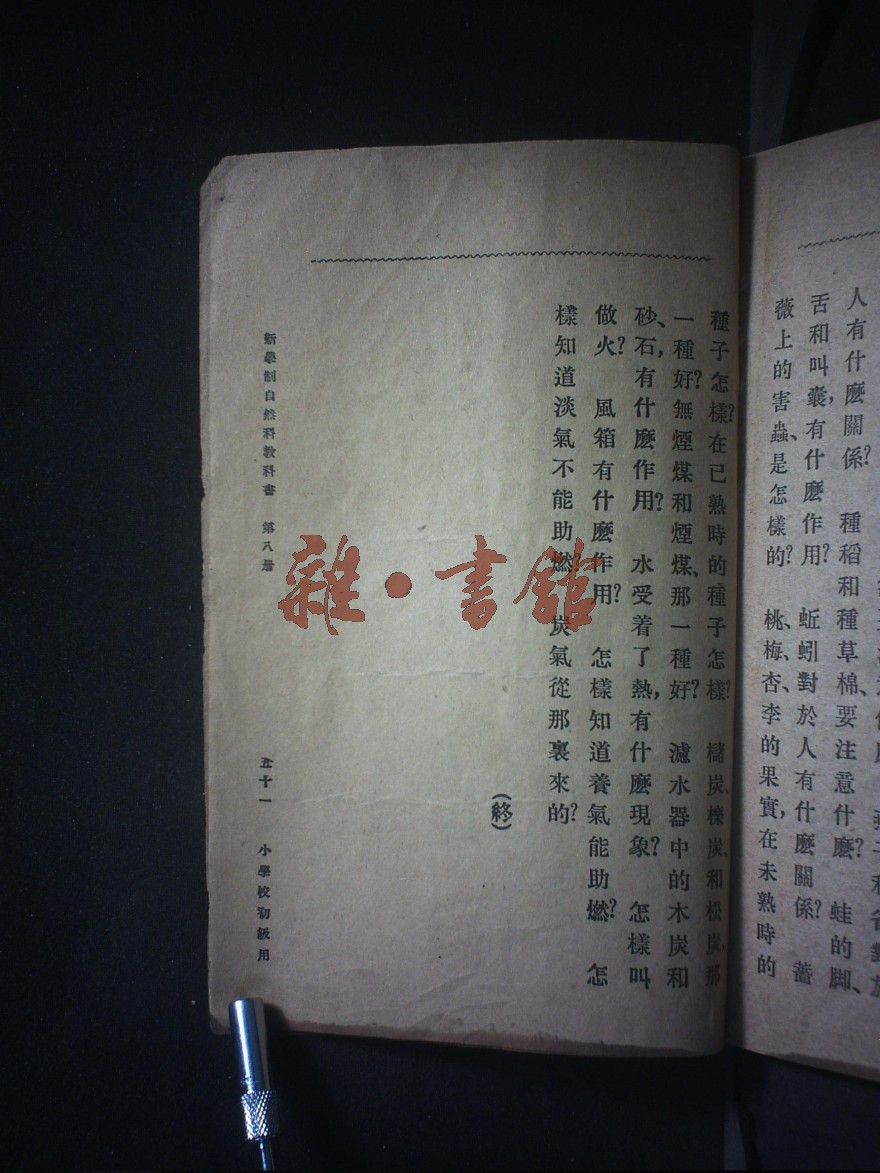 人有什麽關係？　種稻和種草棉、要注意什麽？　蛙的脚、
舌和叫囊，有什麽作用？　蚯蚓對於人有什麽關係？　薔
薇上的害蟲、是怎樣的？　桃、梅、杏、李的果實，在未熟時的
種子怎樣？在已熟時的種子怎樣？　櫧炭、櫟炭、和松炭，那
一種好？無煙煤和煙煤、那一種好？　濾水器中的木炭和
砂、石，有什麽作用？　水受着了熱，有什麽現象？　怎樣叫
做火？　風箱有什麽作用？　怎樣知道養氣能助燃？　怎
樣知道淡氣不能助燃　炭氣從那裏來的？
（終）
新學制自然科教科書　第八册　五十一　小學校初級用
雜·書館